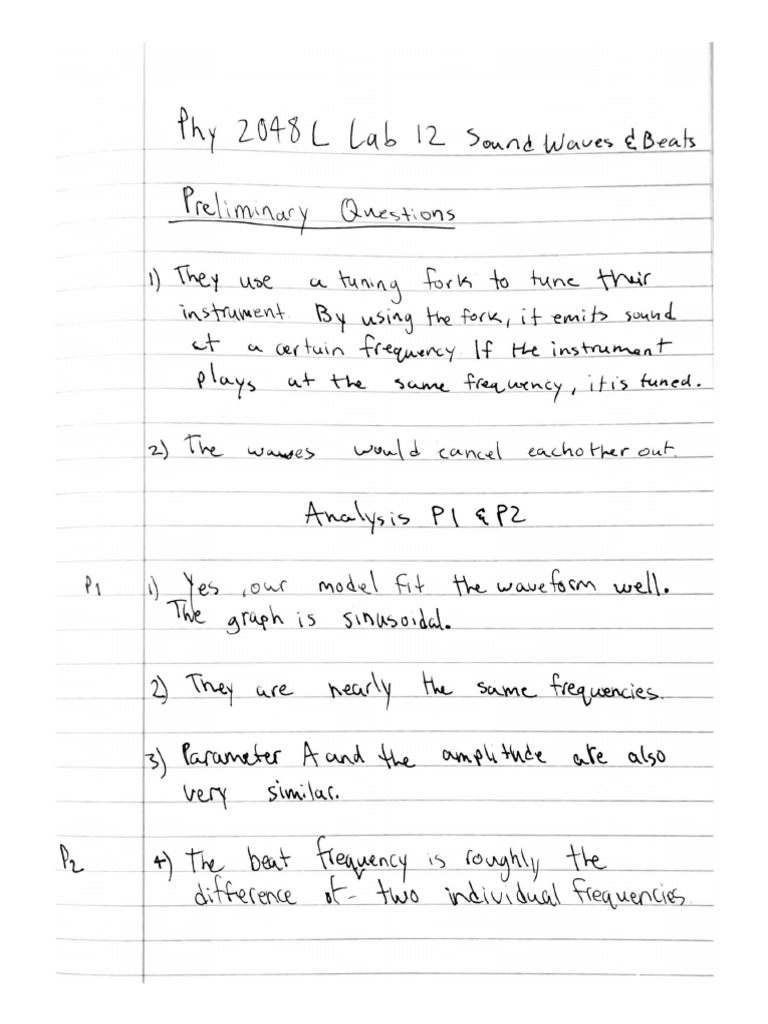 Phy 2048L Lab 12 Sound Waves & Beats
Preliminary Questions
1) They use a tuning fork to tune their
instrument. By using the fork, it emits sound
at a certain frequency If the instrument
plays at the same frequency, it is tuned.
2) The waves would cancel eachother out.
Analysis P1 & P2
P1 1) Yes, our model fit the waveform well.
The graph is sinusoidal.
2) They are nearly the same frequencies.
3) Parameter A and the amplitude are also
very similar.
P2 4) The beat frequency is roughly the
difference of two individual frequencies.